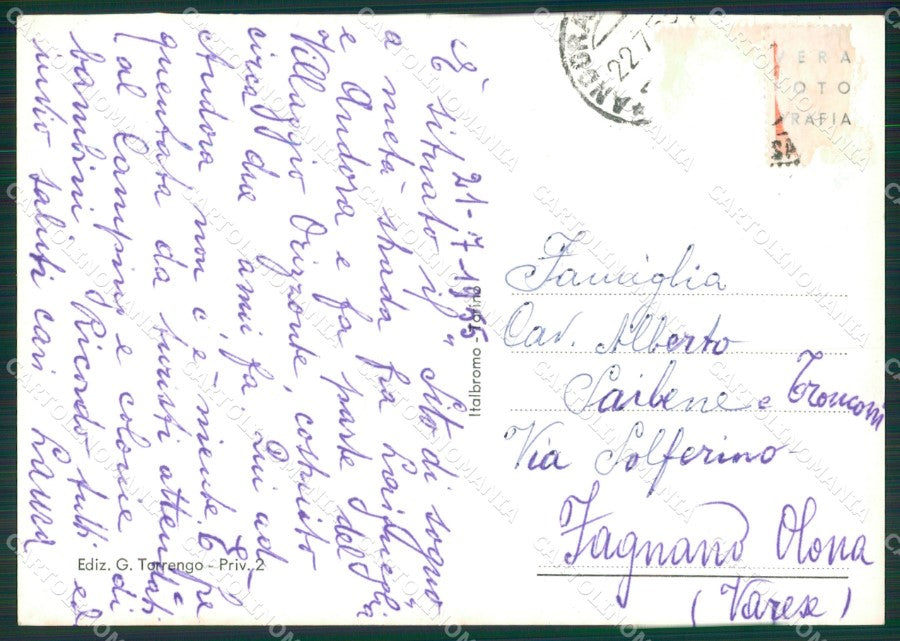 21-7-1955
È situato il "Sito di sogno"
a metà strada fra Laigueglia
e Andora e fa parte del
Villaggio Orizzonte, costruito
circa due anni fa. Qui ad
Andora non c'è niente. È fre
quentata da turisti attendati
(al Camping e colonie di
bambini. Ricordo tutti ed
invio saluti cari Laura
Italbromo - Torino
Ediz. G. Torrengo - Priv. 2
22
VERA
FOTO
GRAFIA
SA
Famiglia
Cav. Alberto
Saibene e Tronconi
Via Solferino
Fagnano Olona
(Varese)
CARTOLINOMANIA